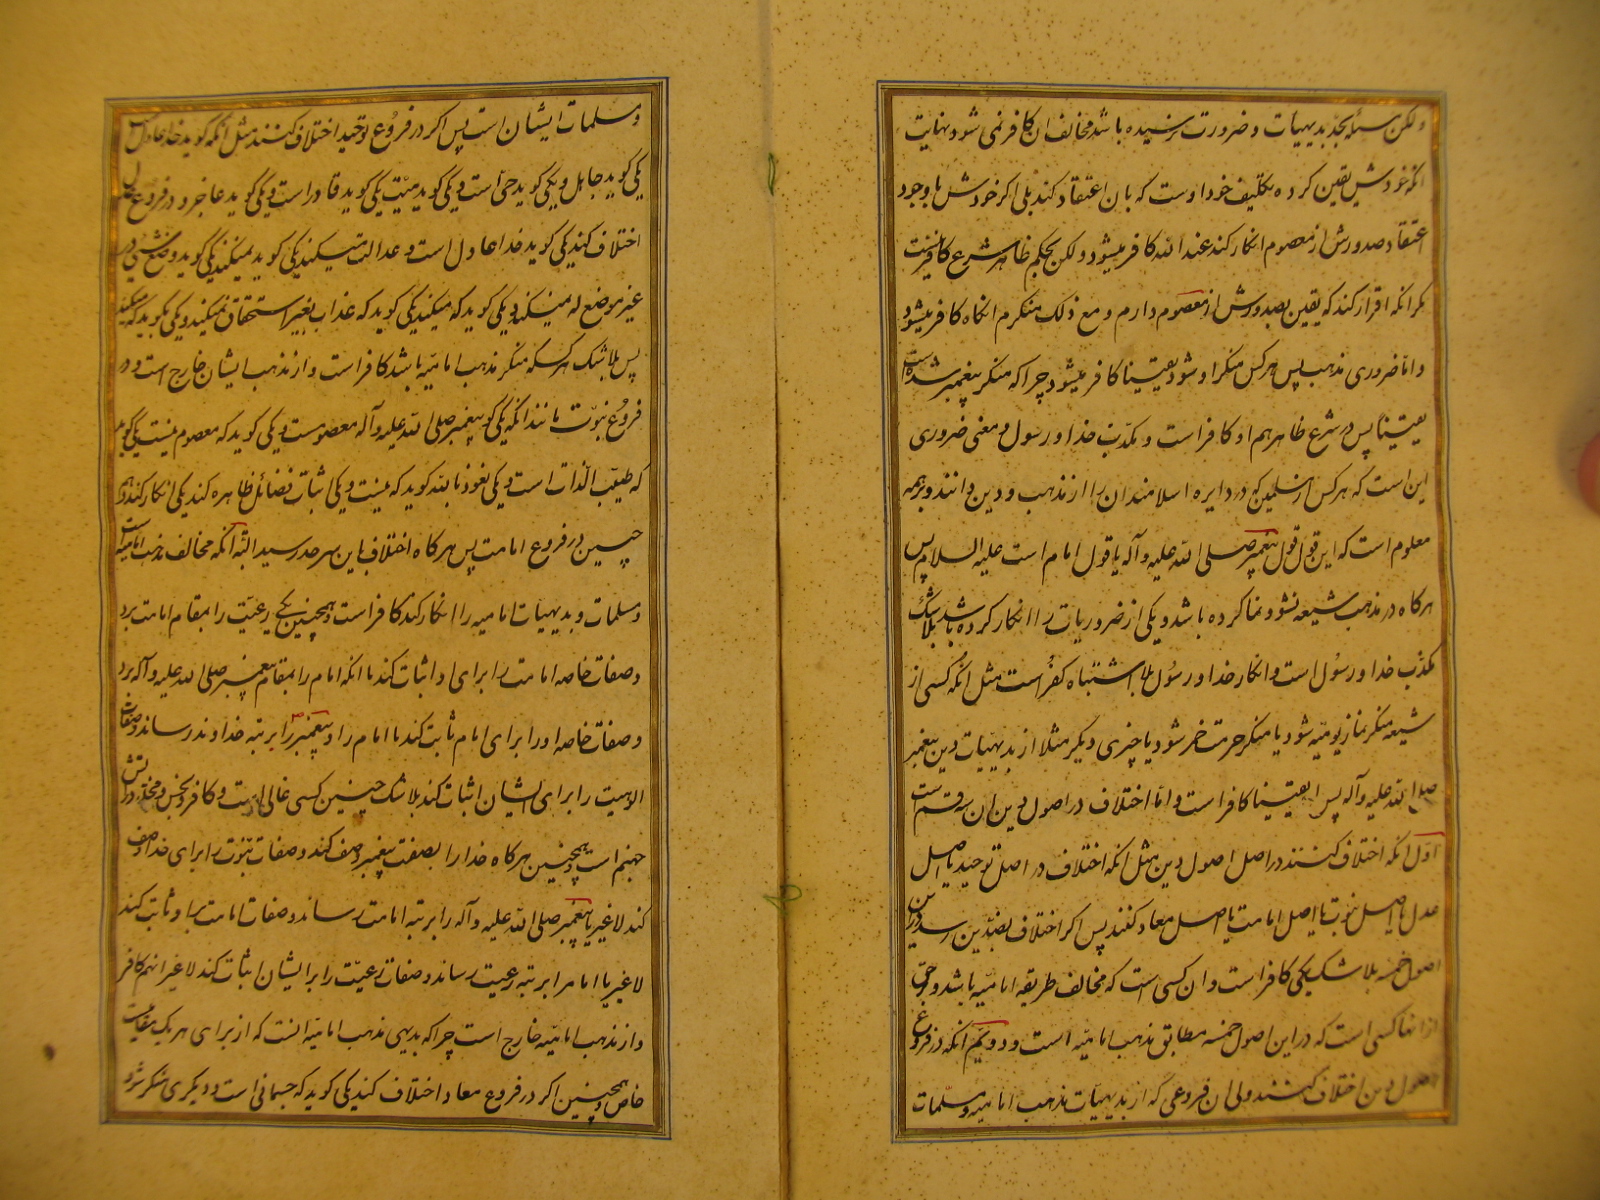 ولکن مسئله بحد بدیهیات و ضرورت نرسیده باشد مخالف ان کافر نمی شود نهایت
انکه خودش یقین کرده تکلیف خود اوست که بان اعتقاد کند بلی اکر خودش با وجود
اعتقاد صدورش از معصوم انکار کند عند الله کافر میشود ولکن بحکم ظاهر شرع کافر نیست
مکر انکه اقرار کند که یقین بصدورش از معصوم دارم و مع ذلک منکرم انکاه کافر میشود
و اما ضروری مذهب پس هر کس منکر او شود یقینا کافر میشود چرا که منکر پیغمبر شده است
یقینا پس در شرع ظاهر هم او کافر است و مکذب خدا و رسول و معنی ضروری
این است که هر کس از مسلمین که در دایره اسلامند ان را از مذهب و دین دانند و بر همه
معلوم است که این قول قول پیغمبر صلی الله علیه و آله یا قول امام است علیه السلام پس
هرکاه در مذهب شیعه نشو و نما کرده باشد و یکی از ضروریات را انکار کرده باشد بلاشک
مکذب خدا و رسول است و انکار خدا و رسول بلا اشتباه کفر است مثل انکه کسی از
شیعه منکر نماز یومیه شود یا منکر حرمت خمر شود یا چیزی دیکر مثلا از بدیهیات دین پیغمبر
صلی الله علیه و آله پس یقینا کافر است و اما اختلاف در اصول دین ان بر دو قسم است
اول انکه اختلاف کنند در اصل اصول دین مثل انکه اختلاف در اصل توحید یا اصل
عدل یا اصل نبوت یا اصل امامت یا اصل معاد کنند پس اکر اختلاف بضدین رسید در این
اصول خمسه بلاشک یکی کافر است و ان کسی است که مخالف طریقه امامیه باشد و ناجی
از انها کسی است که در این اصول خمسه مطابق مذهب امامیه است و دویم انکه در فروع
اصول دین اختلاف کنند ولی ان فروعی که از بدیهیات مذهب امامیه و مسلمات
و مسلمات ایشان است پس اکر در فروع توحید اختلاف کنند مثل انکه یکی کوید خدا عالم است
یکی کوید جاهل و یکی کوید حی است و یکی کوید میت یکی کوید قادر است و یکی کوید عاجز و در فروع عدل
اختلاف کنند یکی کوید خدا عادل است و عدالت میکند یکی کوید نمیکند یکی کوید وضع شیئ در
غیر موضع له نمیکند و یکی کوید که میکند یکی کوید که عذاب بغیر استحقاق نمیکند و یکی بکوید که میکند
پس بلاشک هر کس که منکر مذهب امامیه باشد کافر است و از مذهب ایشان خارج است و در
فروع نبوت مانند انکه یکی کوید پیغمبر صلی الله علیه و آله معصومست و یکی کوید که معصوم نیست یکی کوید
که طیب الذات است و یکی نعوذ بالله کوید که نیست و یکی اثبات فضائل ظاهره کند یکی انکار کند و هم
چنین در فروع امامت پس هرکاه اختلاف باین سر حد رسید البته آنکه مخالف مذهب امامیه است
و مسلمات و بدیهیات امامیه را انکار کند کافر است و همچنین یکی رعیت را بمقام امامت برد
و صفات خاصه امامت را برای او اثبات کند یا انکه امام را بمقام پیغمبر صلی الله علیه و آله برد
و صفات خاصه او را برای امام ثابت کند یا امام را و پیغمبر را برتبه خداوند رساند و صفات
الوهیت را برای ایشان اثبات کند بلاشک چنین کسی غالی است و کافر و نجس و مخلد در آتش
جهنم است و همچنین هرکاه خدا را بصفت پیغمبر وصف کند و صفات نبوت را برای خدا وصف
کند لا غیر یا پیغمبر صلی الله علیه و آله را برتبه امامت رساند و صفات امامت برای او ثابت کند
لا غیر یا امام را برتبه رعیت رساند و صفات رعیت را برای ایشان اثبات کند لا غیر انهم کافر
و از مذهب امامیه خارج است چرا که بدیهی مذهب امامیه انست که از برای هر یک مقامیست
خاص و همچنین اکر در فروع معاد اختلاف کنند یکی کوید که جسمانی است و دیکری منکر شود